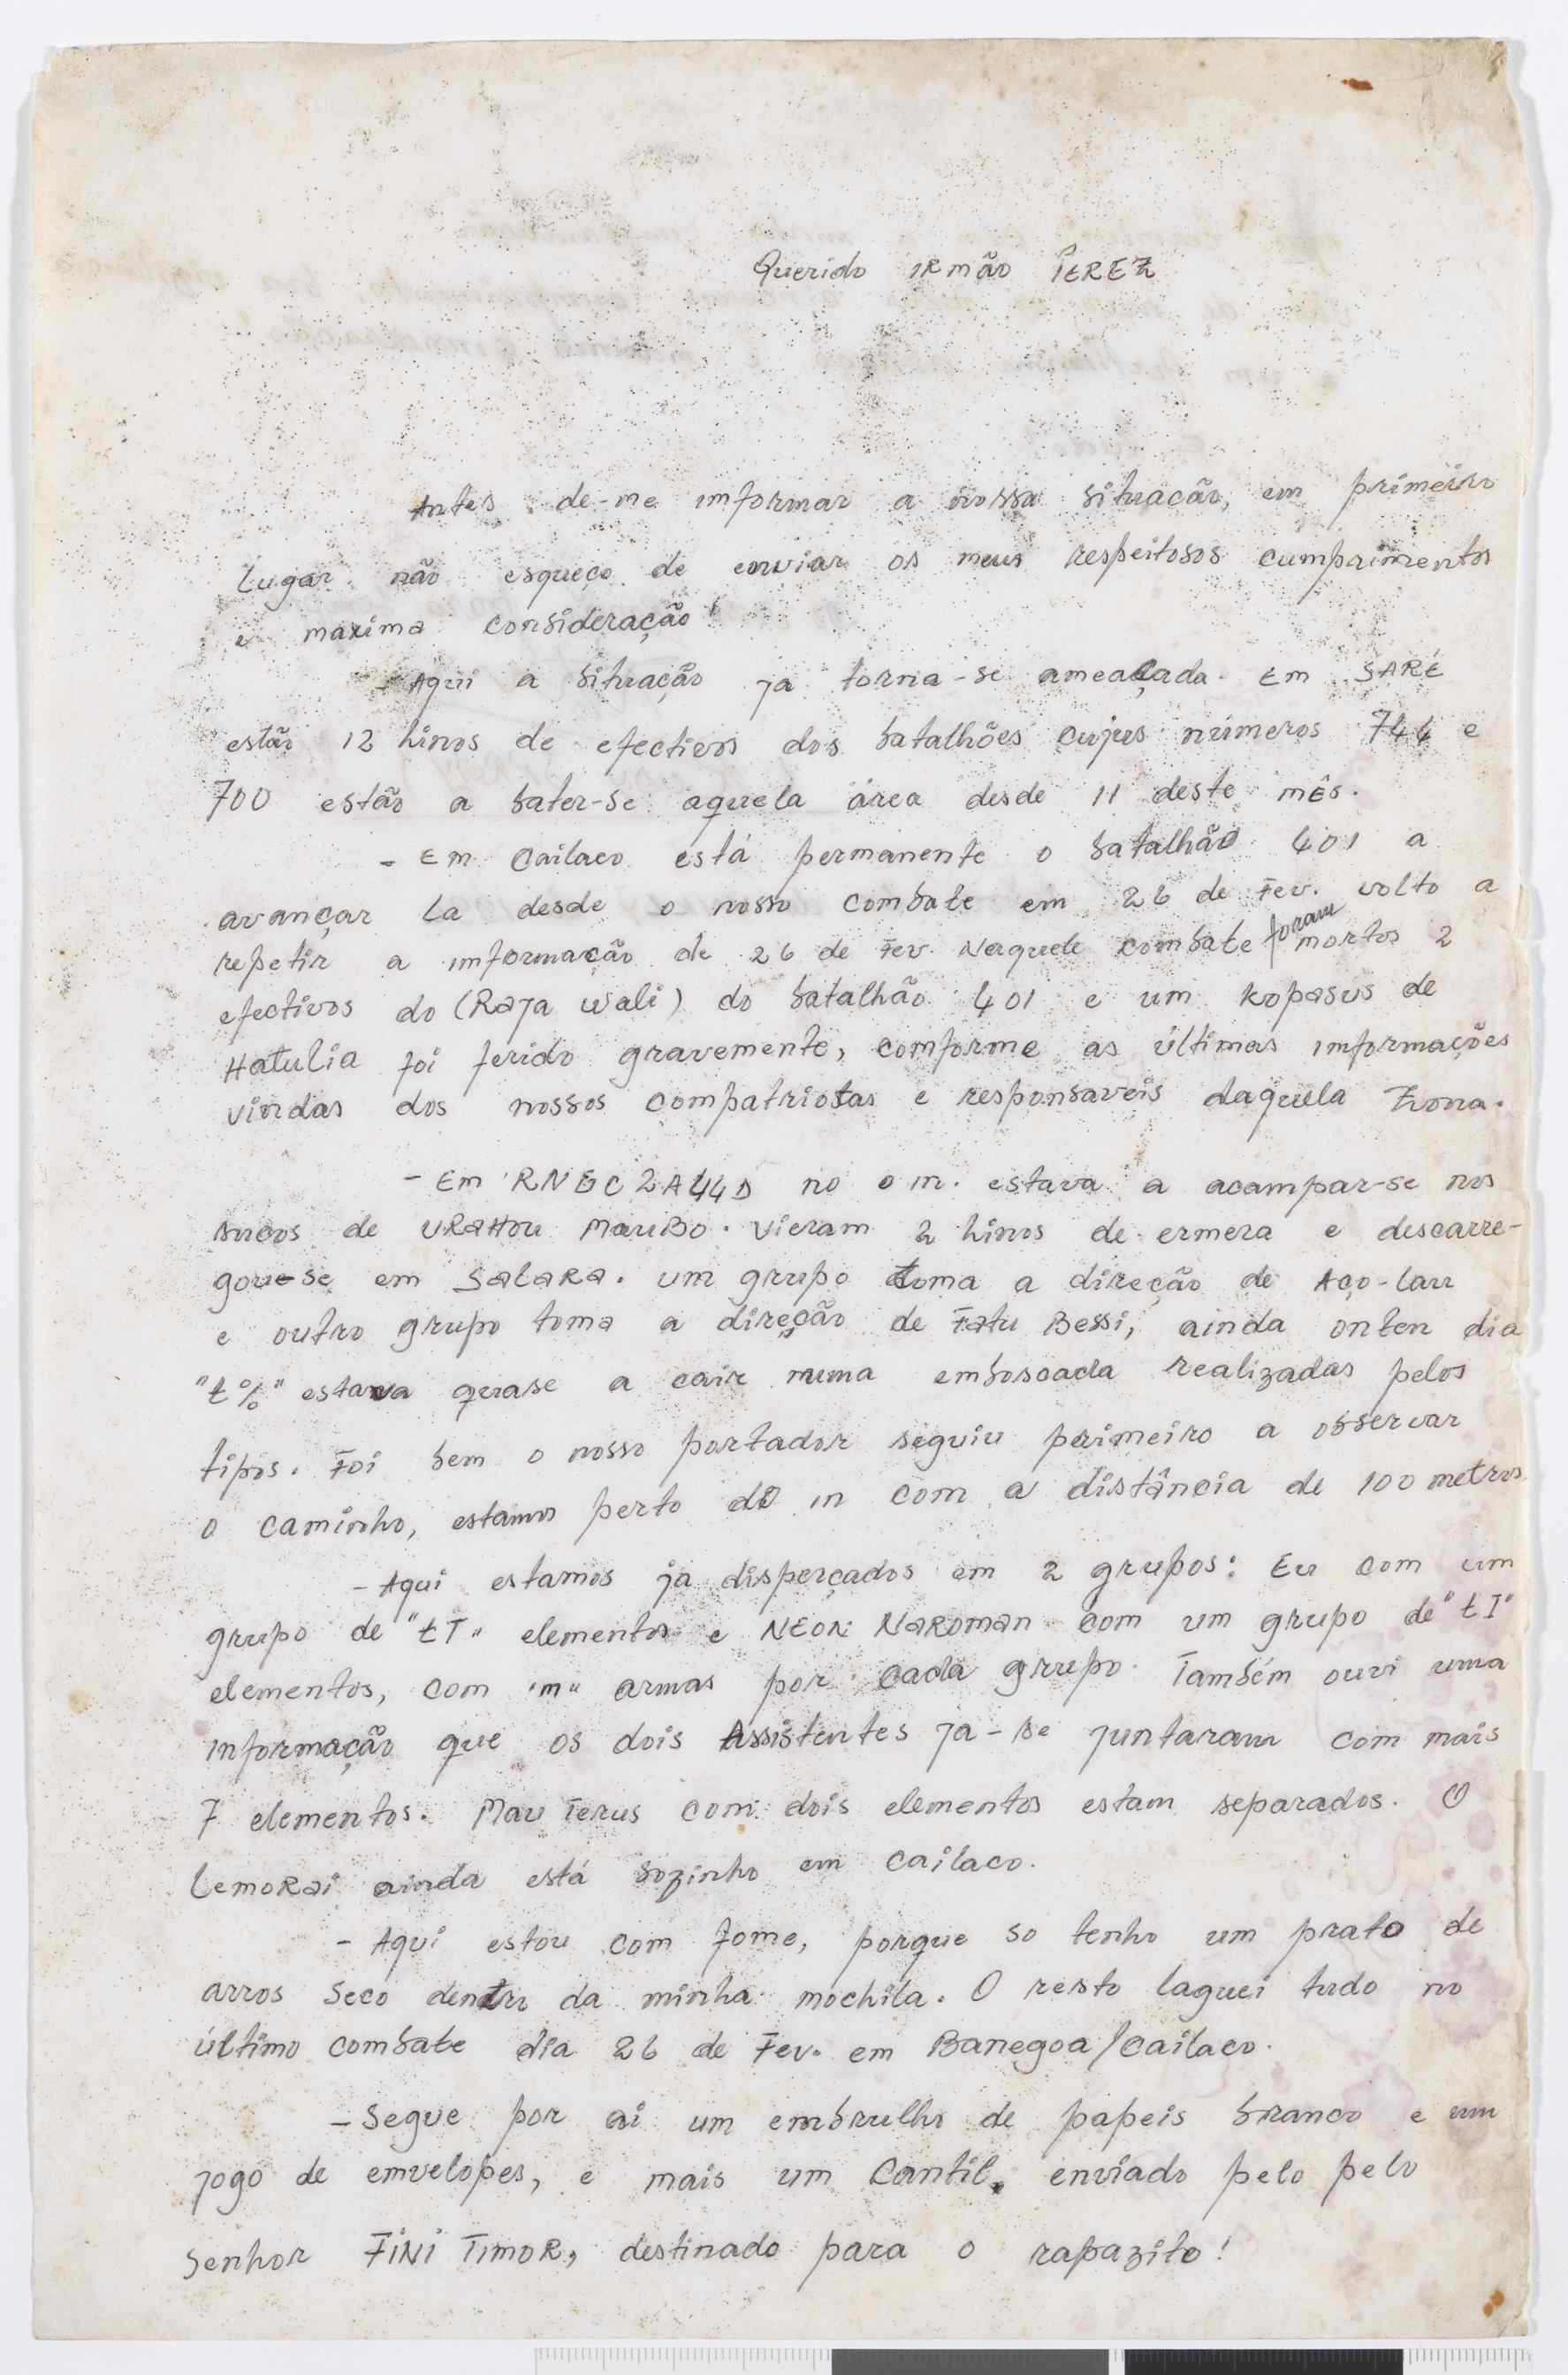 Querido IRmão PEREZ
Antes de-me imformar a nossa situacão, em primeiro
lugar não esqueço de enviar os meus respeitosos cumprimentos
e maxima consideração!
- Aqui a situação ja torna-se ameaçada. Em SARÉ
estão 12 hinos de efectivos dos batalhões cujus números 744 e
700 estão a bater-se aquela área desde 11 deste mês.
- Em Cailaco está permanente o batalhão 401 a
avançar la desde o nosso combate em 26 de Fev. volto a
repetir a imformação de 26 de Fev. Naquele combate foram mortos 2
efectivos do (Raja Wali) do batalhão 401 e um kopasus de
Hatulia foi ferido gravemente, comforme as últimas imformações
vindas dos nossos compatriotas e responsaveis daquela Zona.
- Em RNGC2A44D no o in. estava a acampar-se nos
sucos de URAHOU MauBO. Vieram 2 hinos de ermera e descarre-
gou-se em SalaRa. um grupo toma a direção de Aço-lau
e outro grupo toma a direção de Fatu Bessi, ainda onten dia
"t%" estava quase a cair numa emboscada realizadas pelos
tipos. Foi bem o nosso portador seguiu perimeiro a observar
o caminho, estamos perto do in com a distância de 100 metros
- Aqui estamos ja disperçados em 2 grupos: Eu com um
grupo de "tT" elementos e NEON NaRoman com um grupo de "tI"
elementos, com "m" armas por cada grupo. Também ouvi uma
informação que os dois Assistentes ja-se juntaram com mais
7 elementos. Mau Terus com dois elementos estam separados. O
lemoRai ainda está sozinho em cailaco.
- Aqui estou com fome, porque so tenho um prato de
arros seco dentro da minha mochila. O resto laguei tudo no
último combate dia 26 de Fev. em Banegoa/Cailaco.
- Segue por ai um embrulho de papeis branco e um
jogo de emvelopes, e mais um Cantil, enviado pelo pelo
Senhor FiNi TimoR, destinado para o rapazito!